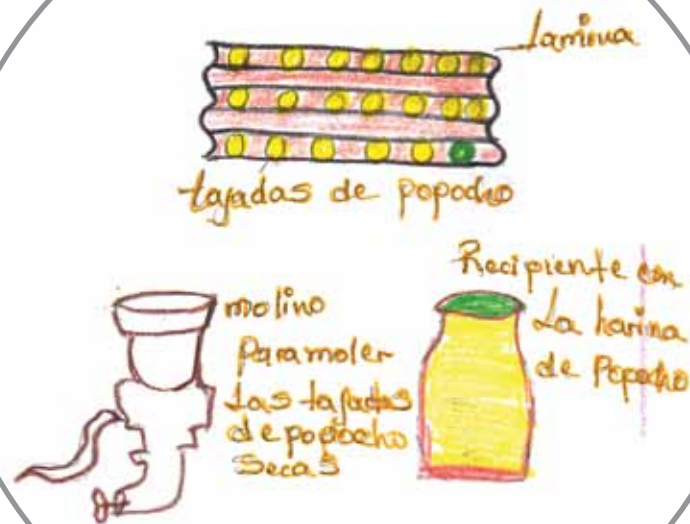 Lamina
tajadas de popocho
molino
Para moler
Las tajadas
de popocho
Secas
Recipiente con
La harina
de Popocho